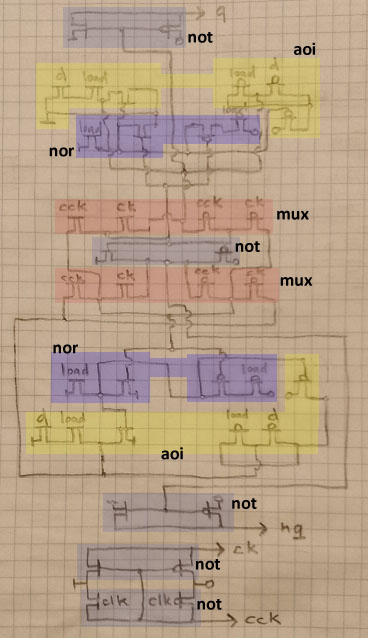 q
not
aoi
d load load d
load load
nor
cck ck cck ck mux
not
cck ck cck ck mux
nor
load load d
d load load d
aoi
not
nq
ck
not
clk clk not
cck